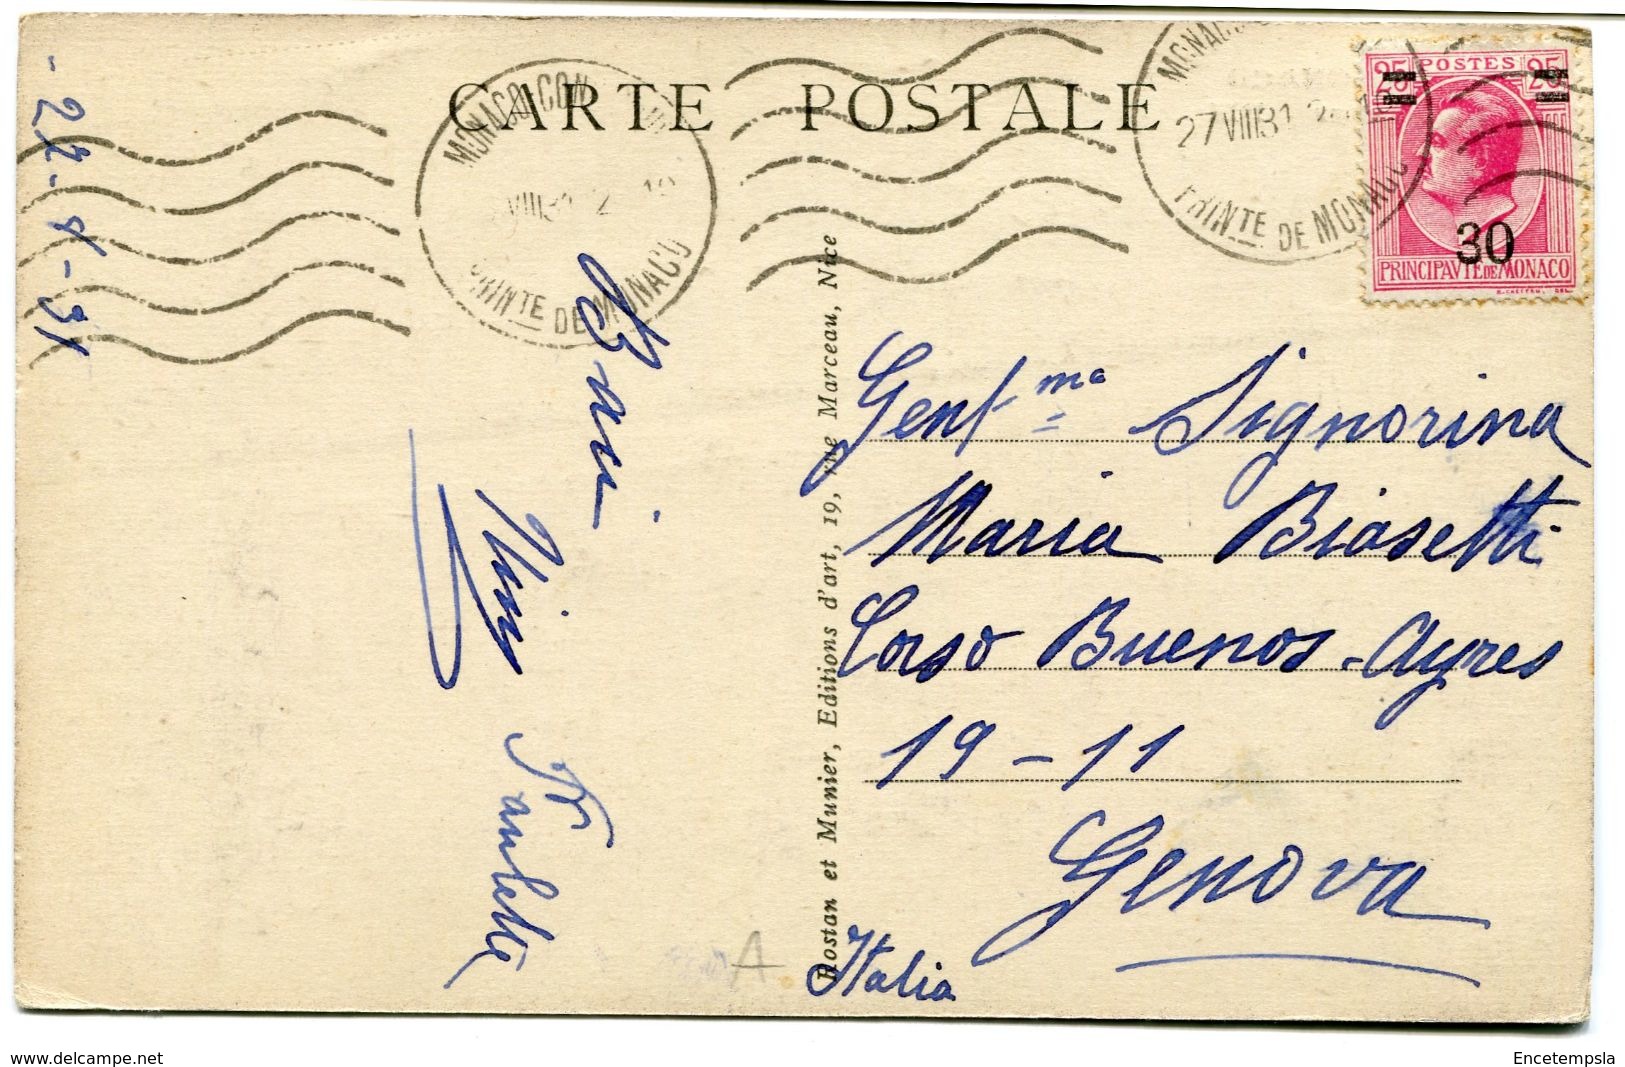 CARTE POSTALE
MONACO-CON
PRINTE DE MONACO
MONACO
27 VIII 31
PRINTE DE MONACO
25 POSTES 25
30
PRINCIPAVTE DE MONACO
- 22-8-31
Baci
Paulette
Rostan et Munier, Editions d'art, 19, rue Marceau, Nice
Gent.ma Signorina
Maria Biasetti
Corso Buenos-Ayres
19-11
Genova
Italia
A
www.delcampe.net
Encetempsla